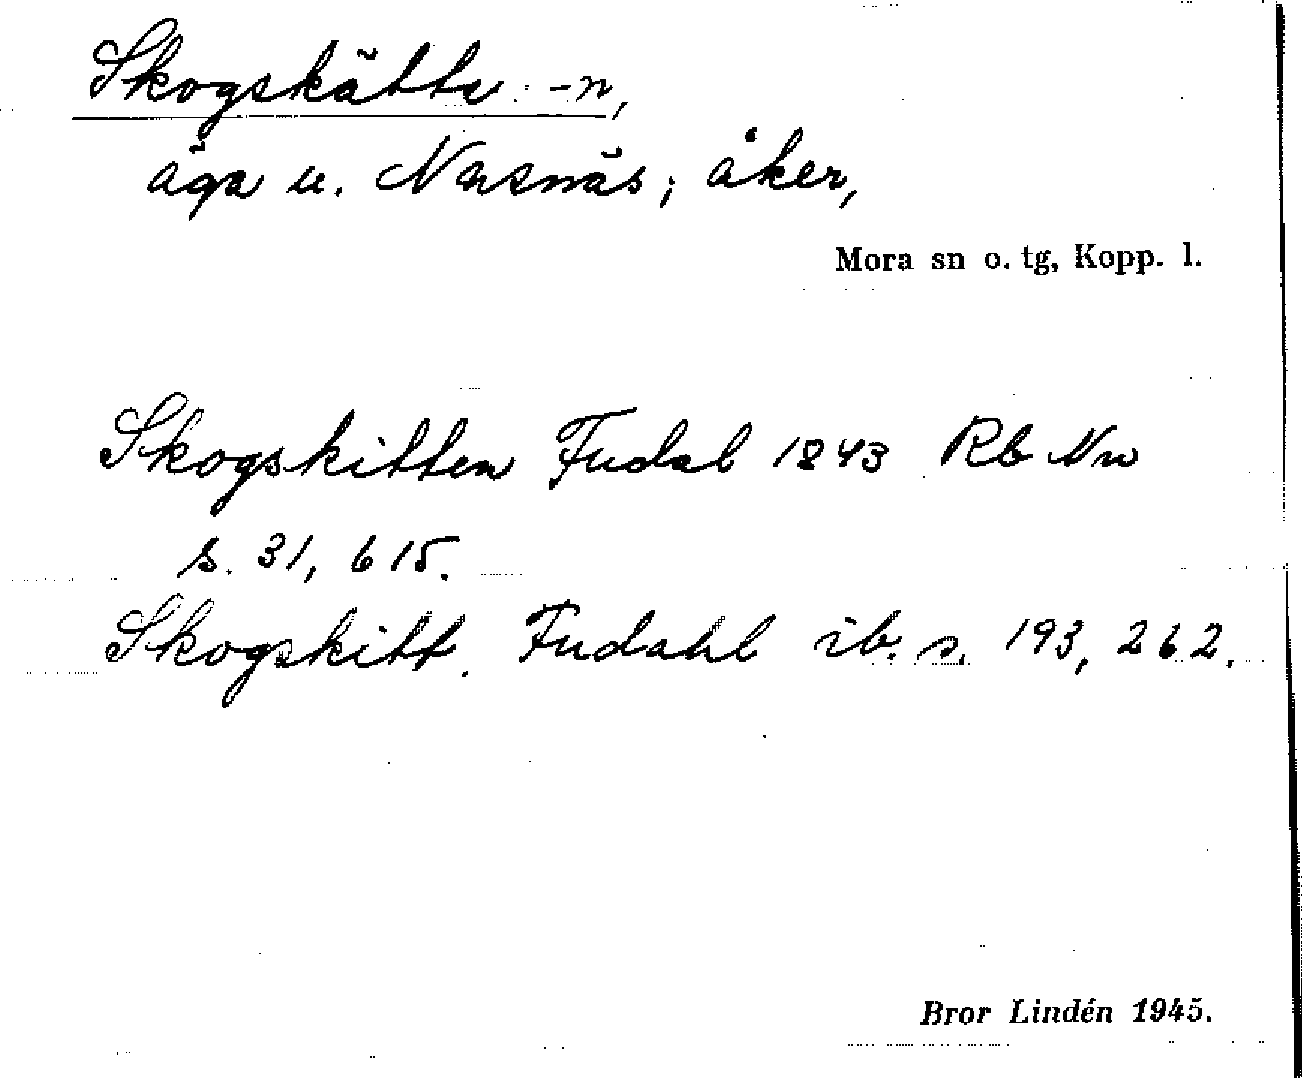 Skogskätte: -n,
äga u. Nusnäs; åker,
Mora sn o. tg, Kopp. l.
Skogskitten Fudal 1843 Rb Nn
s. 31, 615.
Skogskitt. Fudahl ib. s. 193, 262.
Bror Lindén 1945.